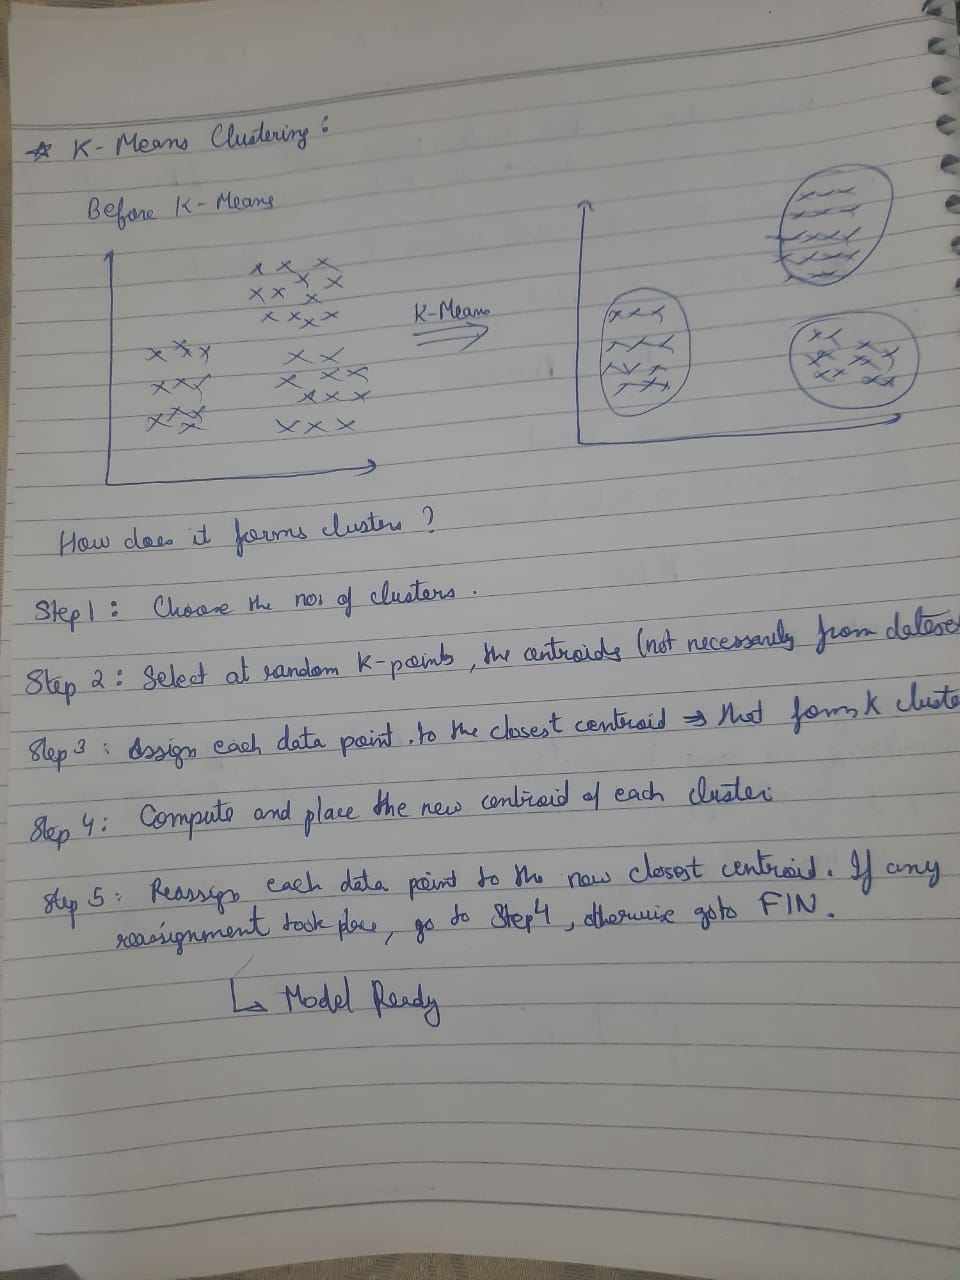 * K-Means Clustering :
Before K-Means
K-Means
How does it forms clusters ?
Step 1 : Choose the no. of clusters .
Step 2 : Select at random K-points , the centroids (not necessarily from datase
Step 3 : Assign each data point . to the closest centroid ⇒ that forms K cluste
Step 4 : Compute and place the new centroid of each cluster.
Step 5 : Reassign each data point to the new closest centroid. If any
reassignment took place, go to Step 4 , otherwise goto FIN .
↳ Model Ready